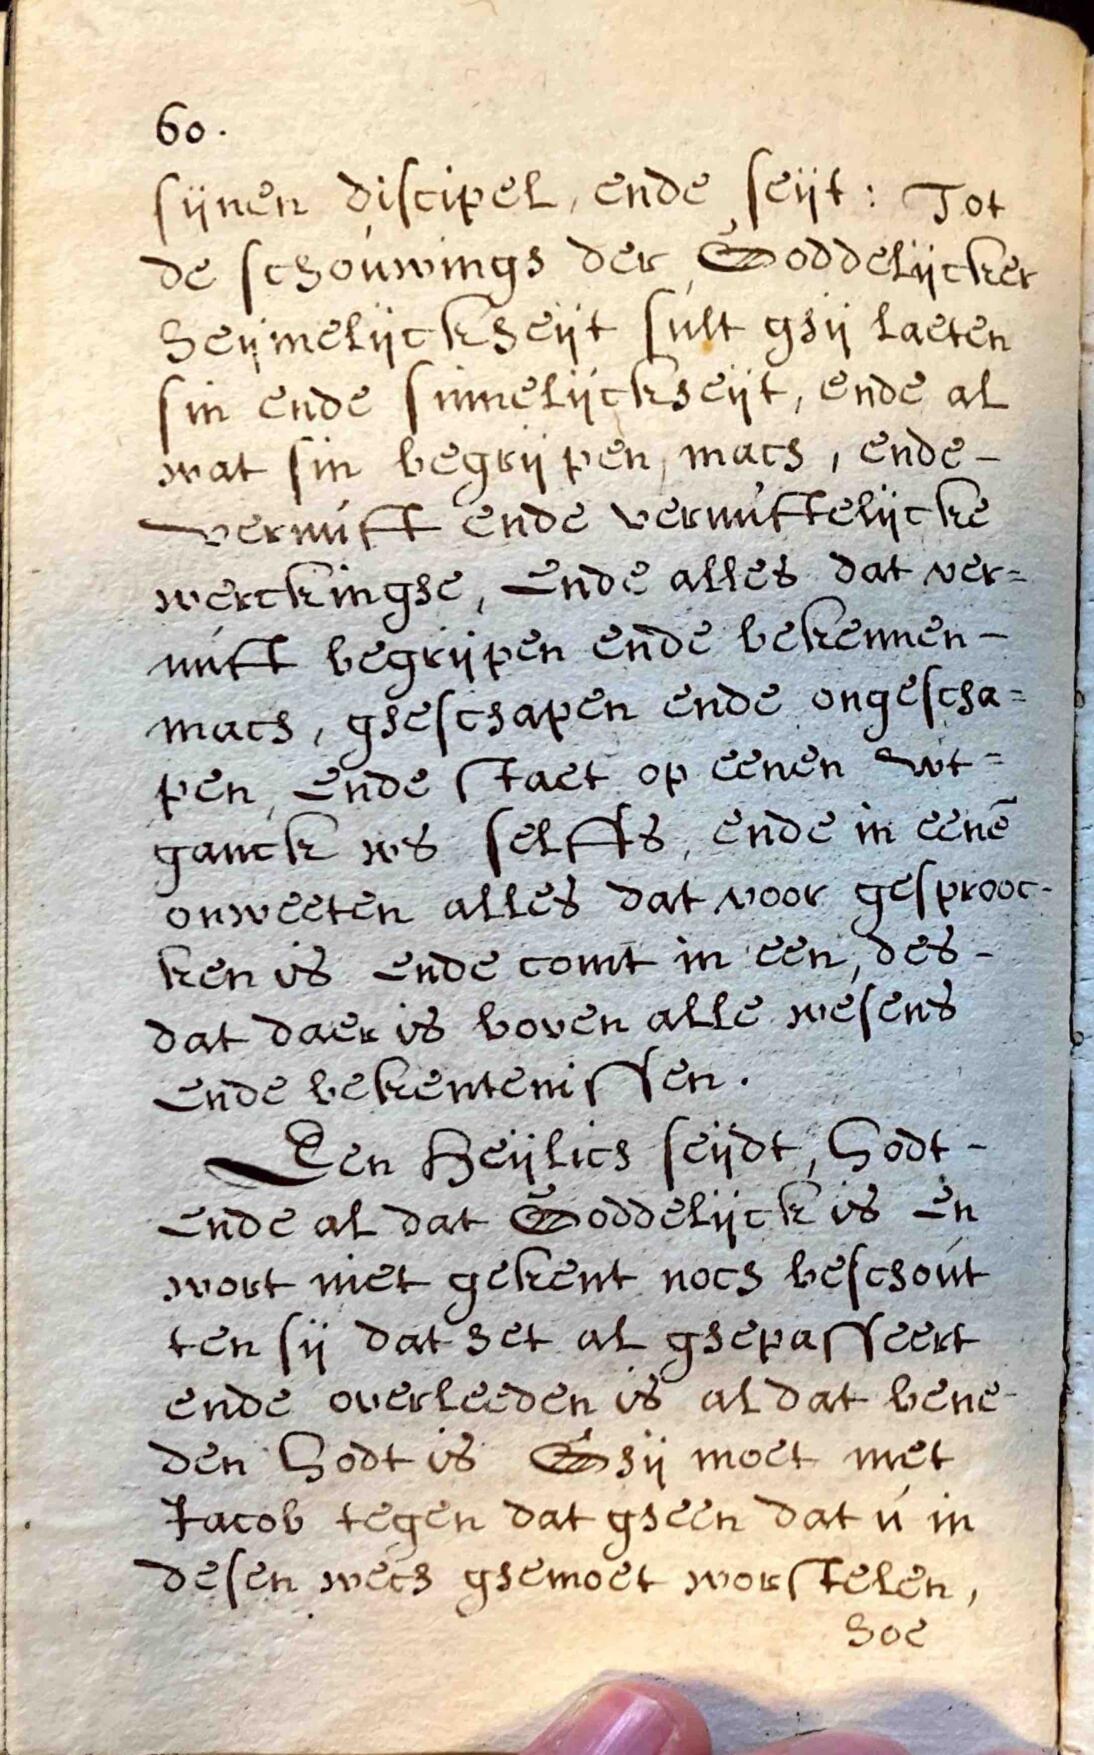 60.
sijnen discipel, ende seijt: Tot
de schouwingh der Goddelijcker
heijmelijckheijt sult ghij laeten
sin ende sinnelijckheijt, ende al
wat sin begrijpen, mach, ende -
vernuft ende vernuftelijcke
werckinghe, Ende alles dat ver=
nuft begrijpen ende bekennen -
mach, gheschapen ende ongescha=
pen, Ende staet op eenen wt=
ganck ws selffs, ende in eenē
onweeten alles dat voor gesprooc-
ken is Ende comt in een, des -
dat daer is boven alle wesens
Ende bekentenissen.
Een Heijlich seijdt, Godt -
Ende al dat Goddelijck is En
wort niet gekent noch beschout
ten sij dat het al ghepasseert
ende overleeden is al dat bene-
den Godt is Ghij moet met
Jacob tegen dat gheen dat u in
desen wech ghemoet worstelen,
hoe